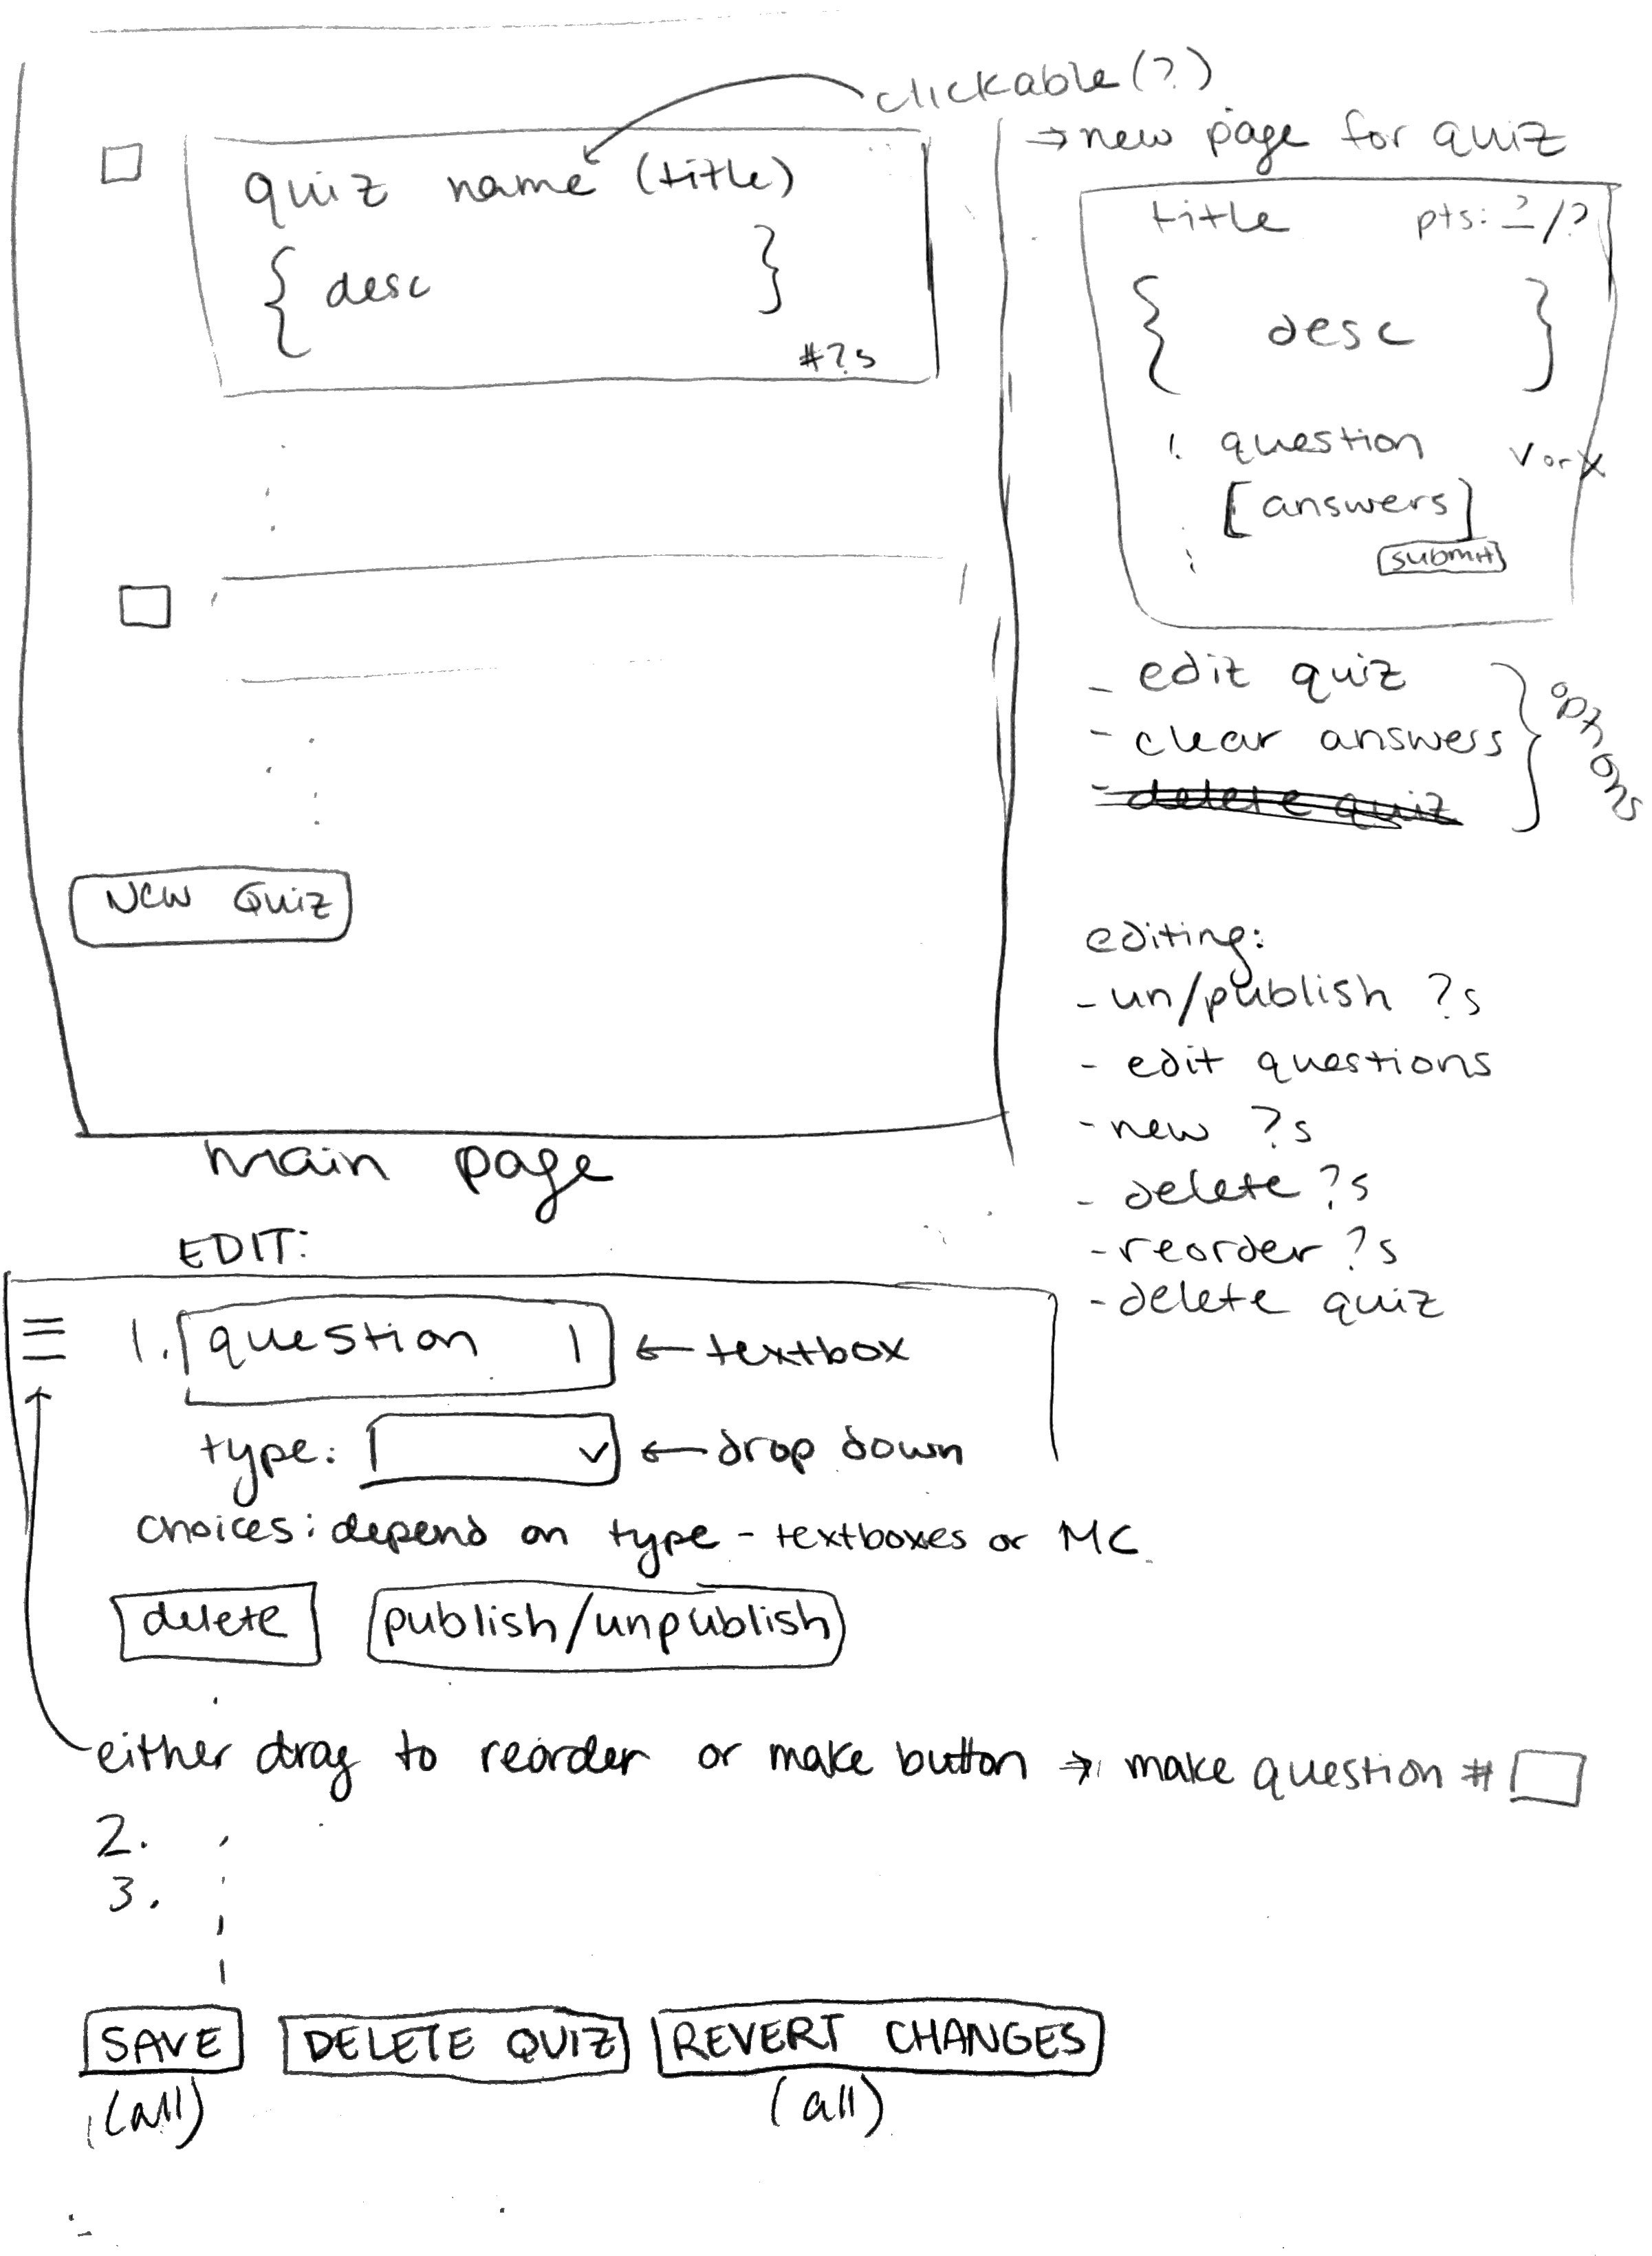 clickable(?)
→ new page for quiz
quiz name (title)
{ desc }
#?s
New Quiz
main page
title pts: ?/?
{ desc }
1. question
v or x
[answers]
submit
- edit quiz
- clear answers
- delete quiz
options
editing:
- un/publish ?s
- edit questions
- new ?s
- delete ?s
- reorder ?s
- delete quiz
EDIT:
1. question ← textbox
type: v ← drop down
choices: depend on type - textboxes or MC
delete publish/unpublish
either drag to reorder or make button → make question #
2.
3.
SAVE DELETE QUIZ REVERT CHANGES
(all) (all)